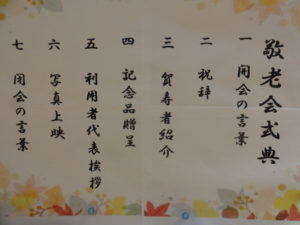 敬老会式典
一 開会の言葉
二 祝辞
三 賀寿者紹介
四 記念品贈呈
五 利用者代表挨拶
六 写真上映
七 閉会の言葉